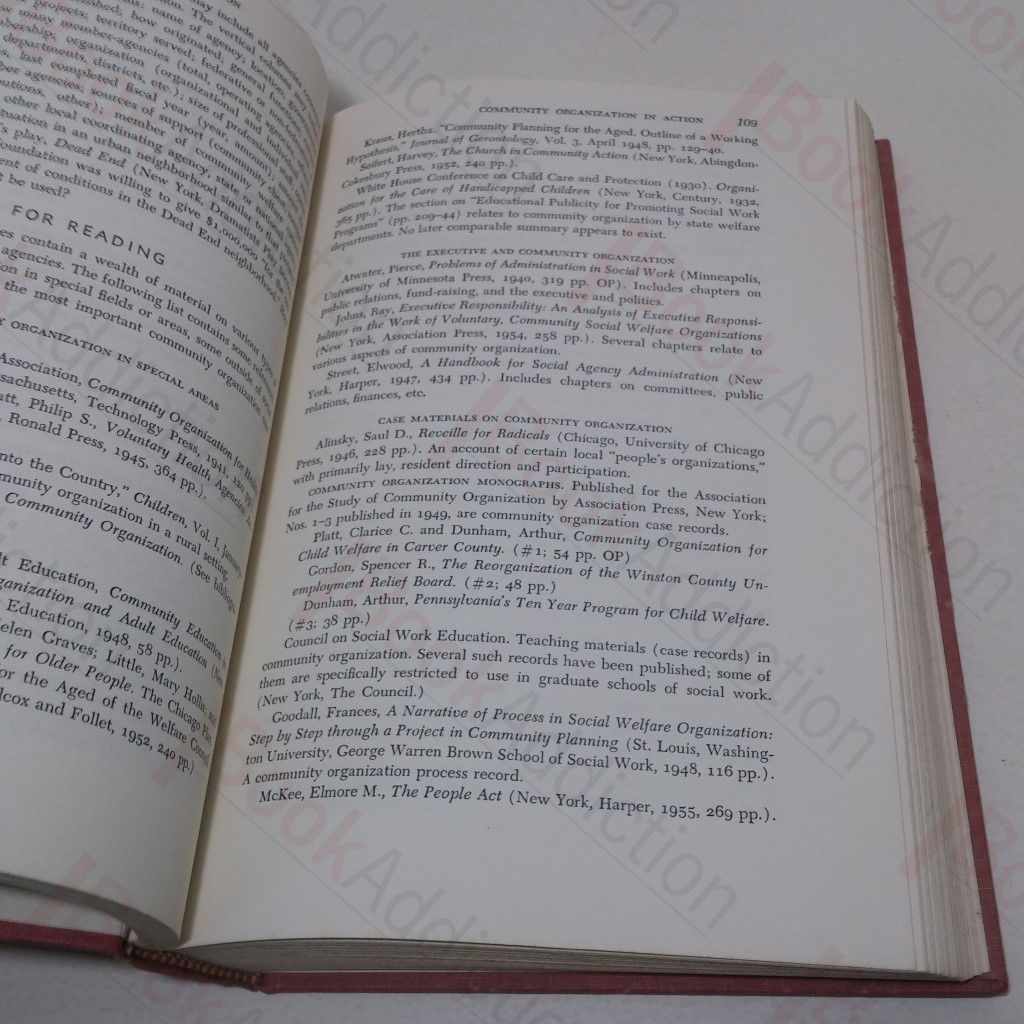 may include all agencies
name of agency; location; geo-
projects; territory served; federative or non-fed-
how originated; general functions
many member-agencies (total, operating
membership; organization (organizational and agency
departments, districts, etc.); size of professional staff
last completed fiscal year (year, amount)
agencies; sources of support (community chest
other); member of community welfare
other local coordinating agency, state or national
situation in an urban neighborhood similar to that
play, Dead End (New York, Dramatists Play
foundation was willing to give $1,000,000 for the
of conditions in the Dead End neighborhood.
be used?
FOR READING
contain a wealth of material on various
agencies. The following list contains some
in special fields or areas, some outside of
the most important community organization
ORGANIZATION IN SPECIAL AREAS
Association, Community Organization for Health
Massachusetts, Technology Press, 1941, 120
Philip S., Voluntary Health Agencies
Ronald Press, 1945, 364 pp.).
into the Country," Children, Vol. I, January
community organization in a rural setting.
Community Organization. (See
Education, Community Education
Organization and Adult Education (New
Education, 1948, 58 pp.).
Helen Graves; Little, Mary Hollis; and
for Older People. The Chicago Plan
for the Aged of the Welfare Council
Wilcox and Follet, 1952, 240 pp.)
COMMUNITY ORGANIZATION IN ACTION 109
Kraus, Hertha. "Community Planning for the Aged. Outline of a Working
Hypothesis," Journal of Gerontology, Vol. 3, April 1948, pp. 129–40.
Seifert, Harvey, The Church in Community Action (New York, Abingdon-
Cokesbury Press, 1952, 240 pp.).
White House Conference on Child Care and Protection (1930). Organi-
zation for the Care of Handicapped Children (New York, Century, 1932,
365 pp.). The section on "Educational Publicity for Promoting Social Work
Programs" (pp. 209–44) relates to community organization by state welfare
departments. No later comparable summary appears to exist.
THE EXECUTIVE AND COMMUNITY ORGANIZATION
Atwater, Pierce, Problems of Administration in Social Work (Minneapolis,
University of Minnesota Press, 1940, 319 pp. OP). Includes chapters on
public relations, fund-raising, and the executive and politics.
Johns, Ray, Executive Responsibility: An Analysis of Executive Responsi-
bilities in the Work of Voluntary, Community Social Welfare Organizations
(New York, Association Press, 1954, 258 pp.). Several chapters relate to
various aspects of community organization.
Street, Elwood, A Handbook for Social Agency Administration (New
York, Harper, 1947, 434 pp.). Includes chapters on committees, public
relations, finances, etc.
CASE MATERIALS ON COMMUNITY ORGANIZATION
Alinsky, Saul D., Reveille for Radicals (Chicago, University of Chicago
Press, 1946, 228 pp.). An account of certain local "people's organizations,"
with primarily lay, resident direction and participation.
COMMUNITY ORGANIZATION MONOGRAPHS. Published for the Association
for the Study of Community Organization by Association Press, New York;
Nos. 1–3 published in 1949, are community organization case records.
Platt, Clarice C. and Dunham, Arthur, Community Organization for
Child Welfare in Carver County. (#1; 54 pp. OP)
Gordon, Spencer R., The Reorganization of the Winston County Un-
employment Relief Board. (#2; 48 pp.)
Dunham, Arthur, Pennsylvania's Ten Year Program for Child Welfare.
(#3; 38 pp.)
Council on Social Work Education. Teaching materials (case records) in
community organization. Several such records have been published; some of
them are specifically restricted to use in graduate schools of social work.
(New York, The Council.)
Goodall, Frances, A Narrative of Process in Social Welfare Organization:
Step by Step through a Project in Community Planning (St. Louis, Washing-
ton University, George Warren Brown School of Social Work, 1948, 116 pp.).
A community organization process record.
McKee, Elmore M., The People Act (New York, Harper, 1955, 269 pp.).
BookAddiction